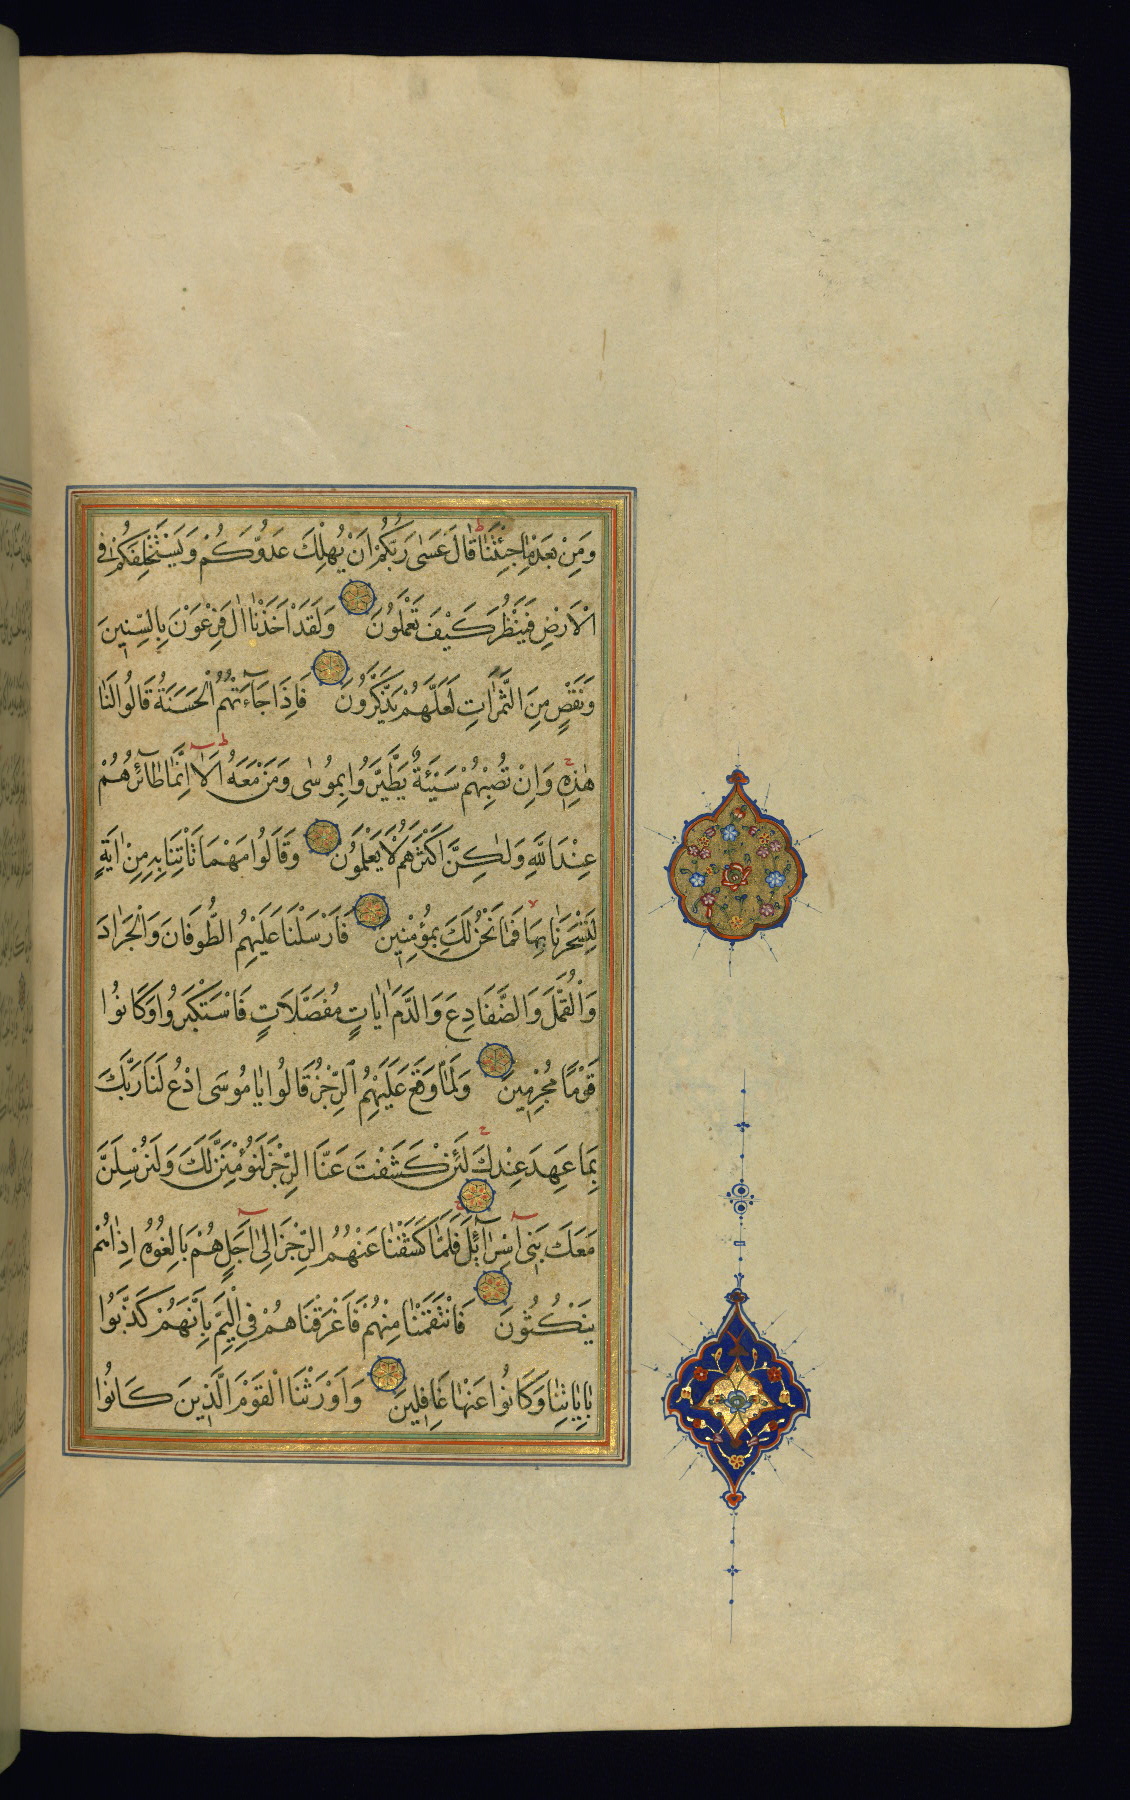 وَمِنْ بَعْدِ مَا جِئْتَنَا قَالَ عَسٰى رَبُّكُمْ اَنْ يُهْلِكَ عَدُوَّكُمْ وَيَسْتَخْلِفَكُمْ فِى
الْاَرْضِ فَيَنْظُرَ كَيْفَ تَعْمَلُونَ وَلَقَدْ اَخَذْنَا اٰلَ فِرْعَوْنَ بِالسِّنِينَ
وَنَقْصٍ مِنَ الثَّمَرَاتِ لَعَلَّهُمْ يَذَّكَّرُونَ فَاِذَا جَآءَتْهُمُ الْحَسَنَةُ قَالُوا لَنَا
هٰذِهِ وَاِنْ تُصِبْهُمْ سَيِّئَةٌ يَطَّيَّرُوا بِمُوسٰى وَمَنْ مَعَهُ اَلَا اِنَّمَا طَآئِرُهُمْ
عِنْدَ اللّٰهِ وَلٰكِنَّ اَكْثَرَهُمْ لَا يَعْلَمُونَ وَقَالُوا مَهْمَا تَاْتِنَا بِهِ مِنْ اٰيَةٍ
لِتَسْحَرَنَا بِهَا فَمَا نَحْنُ لَكَ بِمُؤْمِنِينَ فَاَرْسَلْنَا عَلَيْهِمُ الطُّوفَانَ وَالْجَرَادَ
وَالْقُمَّلَ وَالضَّفَادِعَ وَالدَّمَ اٰيَاتٍ مُفَصَّلَاتٍ فَاسْتَكْبَرُوا وَكَانُوا
قَوْمًا مُجْرِمِينَ وَلَمَّا وَقَعَ عَلَيْهِمُ الرِّجْزُ قَالُوا يَا مُوسَى ادْعُ لَنَا رَبَّكَ
بِمَا عَهِدَ عِنْدَكَ لَئِنْ كَشَفْتَ عَنَّا الرِّجْزَ لَنُؤْمِنَنَّ لَكَ وَلَنُرْسِلَنَّ
مَعَكَ بَنِى اِسْرَآئِلَ فَلَمَّا كَشَفْنَا عَنْهُمُ الرِّجْزَ اِلٰى اَجَلٍ هُمْ بَالِغُوهُ اِذَا هُمْ
يَنْكُثُونَ فَانْتَقَمْنَا مِنْهُمْ فَاَغْرَقْنَاهُمْ فِى الْيَمِّ بِاَنَّهُمْ كَذَّبُوا
بِاٰيَاتِنَا وَكَانُوا عَنْهَا غَافِلِينَ وَاَوْرَثْنَا الْقَوْمَ الَّذِينَ كَانُوا